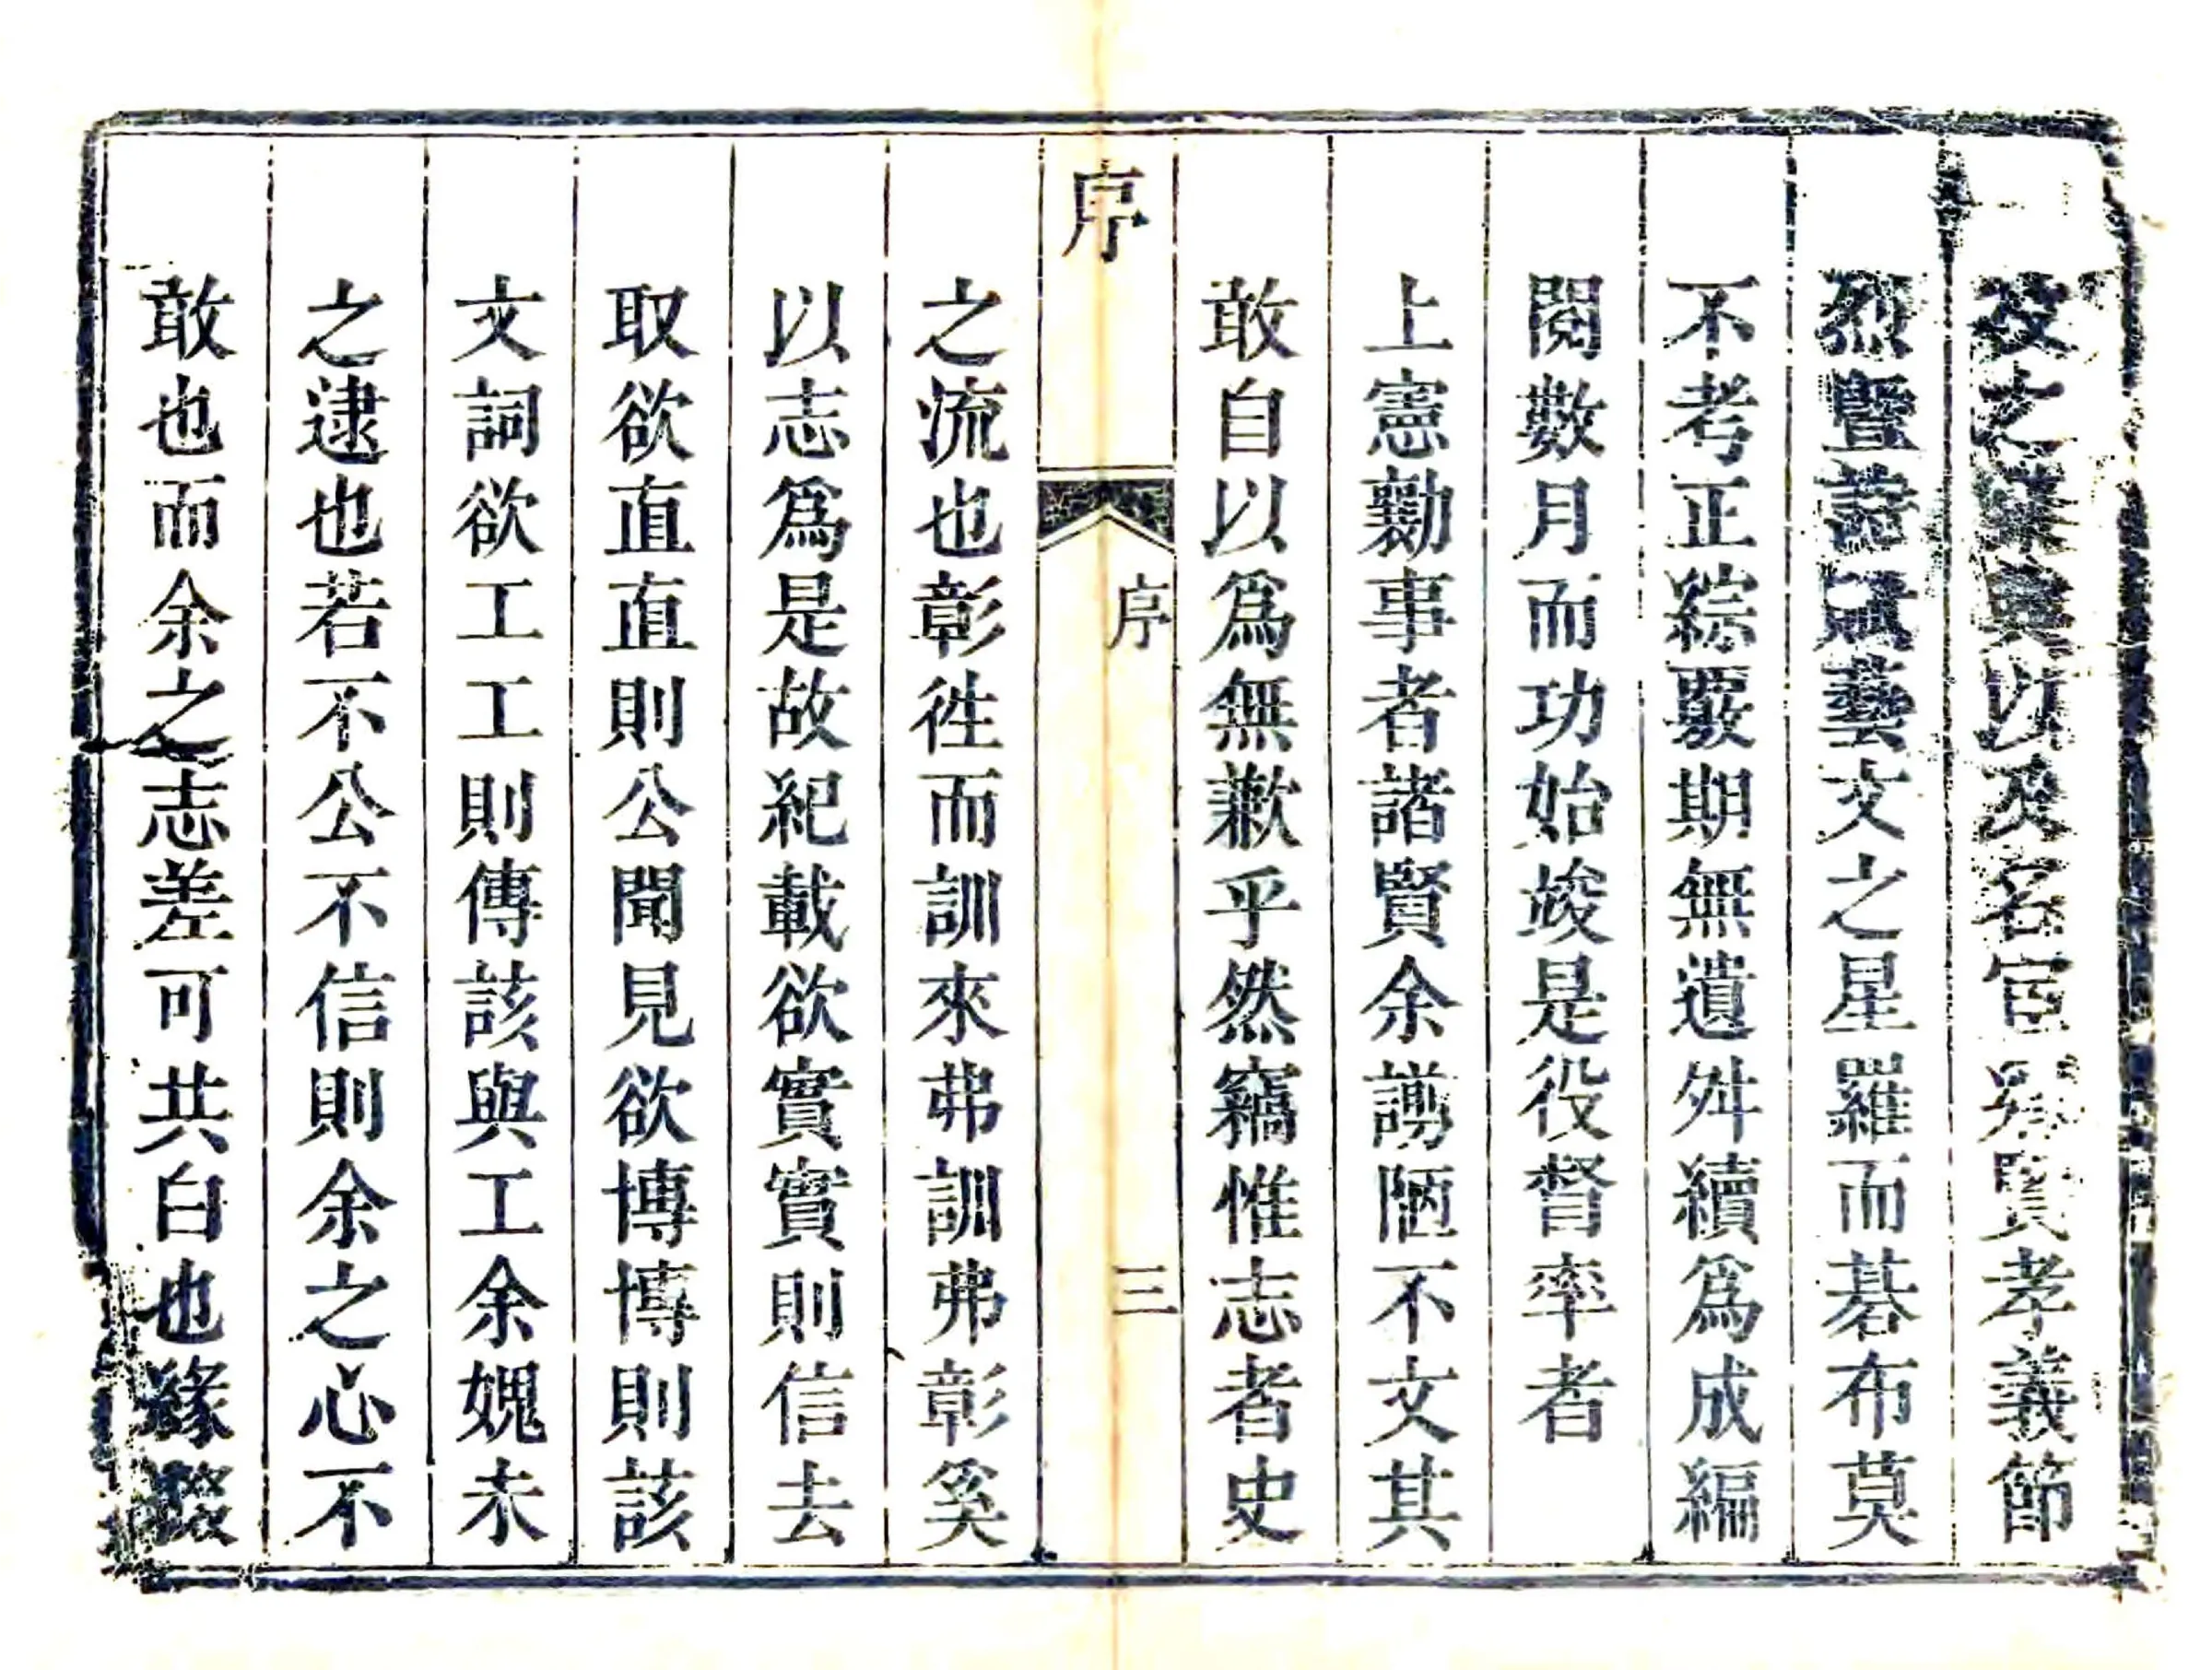 及之以及名宦賢孝義節
烈暨詩賦藝文之星羅而碁布莫
不考正綜覈期無遺舛續爲成編
閱數月而功始竣是役督率者
上憲勷事者諸賢余謭陋不文其
敢自以爲無歉乎然竊惟志者史
序
序
三
之流也彰徃而訓來弗訓弗彰奚
以志爲是故紀載欲實實則信去
取欲直直則公聞見欲博博則該
文詞欲工工則傳該與工余媿未
之逮也若不公不信則余之心不
敢也而余之志差可共白也緣